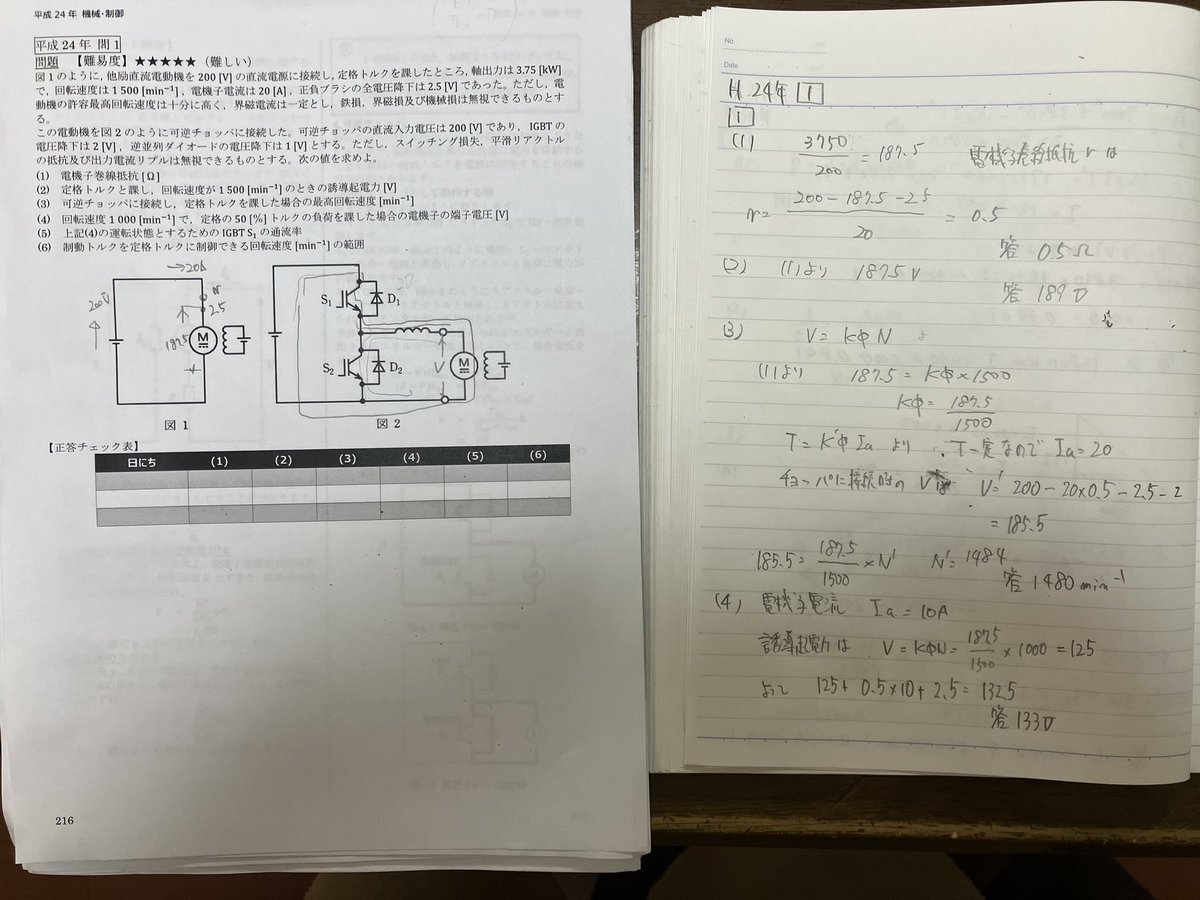 平成 24 年 機械・制御
平成 24 年 問 1
問題 【難易度】★★★★★（難しい）
図 1 のように, 他励直流電動機を 200 [V] の直流電源に接続し, 定格トルクを課したところ, 軸出力は 3.75 [kW]
で, 回転速度は 1 500 [min⁻¹] , 電機子電流は 20 [A] , 正負ブラシの全電圧降下は 2.5 [V] であった。ただし, 電
動機の許容最高回転速度は十分に高く, 界磁電流は一定とし, 鉄損, 界磁損及び機械損は無視できるものとす
る。
この電動機を図 2 のように可逆チョッパに接続した。可逆チョッパの直流入力電圧は 200 [V] であり, IGBT の
電圧降下は 2 [V] , 逆並列ダイオードの電圧降下は 1 [V] とする。ただし, スイッチング損失, 平滑リアクトル
の抵抗及び出力電流リプルは無視できるものとする。次の値を求めよ。
(1) 電機子巻線抵抗 [Ω]
(2) 定格トルクと課し, 回転速度が 1 500 [min⁻¹] のときの誘導起電力 [V]
(3) 可逆チョッパに接続し, 定格トルクを課した場合の最高回転速度 [min⁻¹]
(4) 回転速度 1 000 [min⁻¹] で, 定格の 50 [%] トルクの負荷を課した場合の電機子の端子電圧 [V]
(5) 上記(4)の運転状態とするための IGBT S₁ の通流率
(6) 制動トルクを定格トルクに制御できる回転速度 [min⁻¹] の範囲
→20A
200V
r
2.5
187.5
M
S₁
D₁
20
S₂
D₂
V
M
図 1
図 2
【正答チェック表】
日にち (1) (2) (3) (4) (5) (6)
216
No.
Date
H.24年 1
1
(1) 3750/200 = 187.5 電機子巻線抵抗 r は
r = (200 - 187.5 - 2.5)/20 = 0.5
答 0.5Ω
(2) (1)より 187.5 V
答 189 V
(3) V = KΦN
(1)より 187.5 = KΦ×1500
KΦ = 187.5/1500
T = K'Φ Ia より ∴T=一定なので Ia = 20
チョッパに接続時の V' は V' = 200 - 20×0.5 - 2.5 - 2
= 185.5
185.5 = 187.5/1500 × N' N' = 1484
答 1480 min⁻¹
(4) 電機子電流 Ia = 10A
誘導起電力は V = KΦN = 187.5/1500 × 1000 = 125
よって 125 + 0.5×10 + 2.5 = 132.5
答 133V